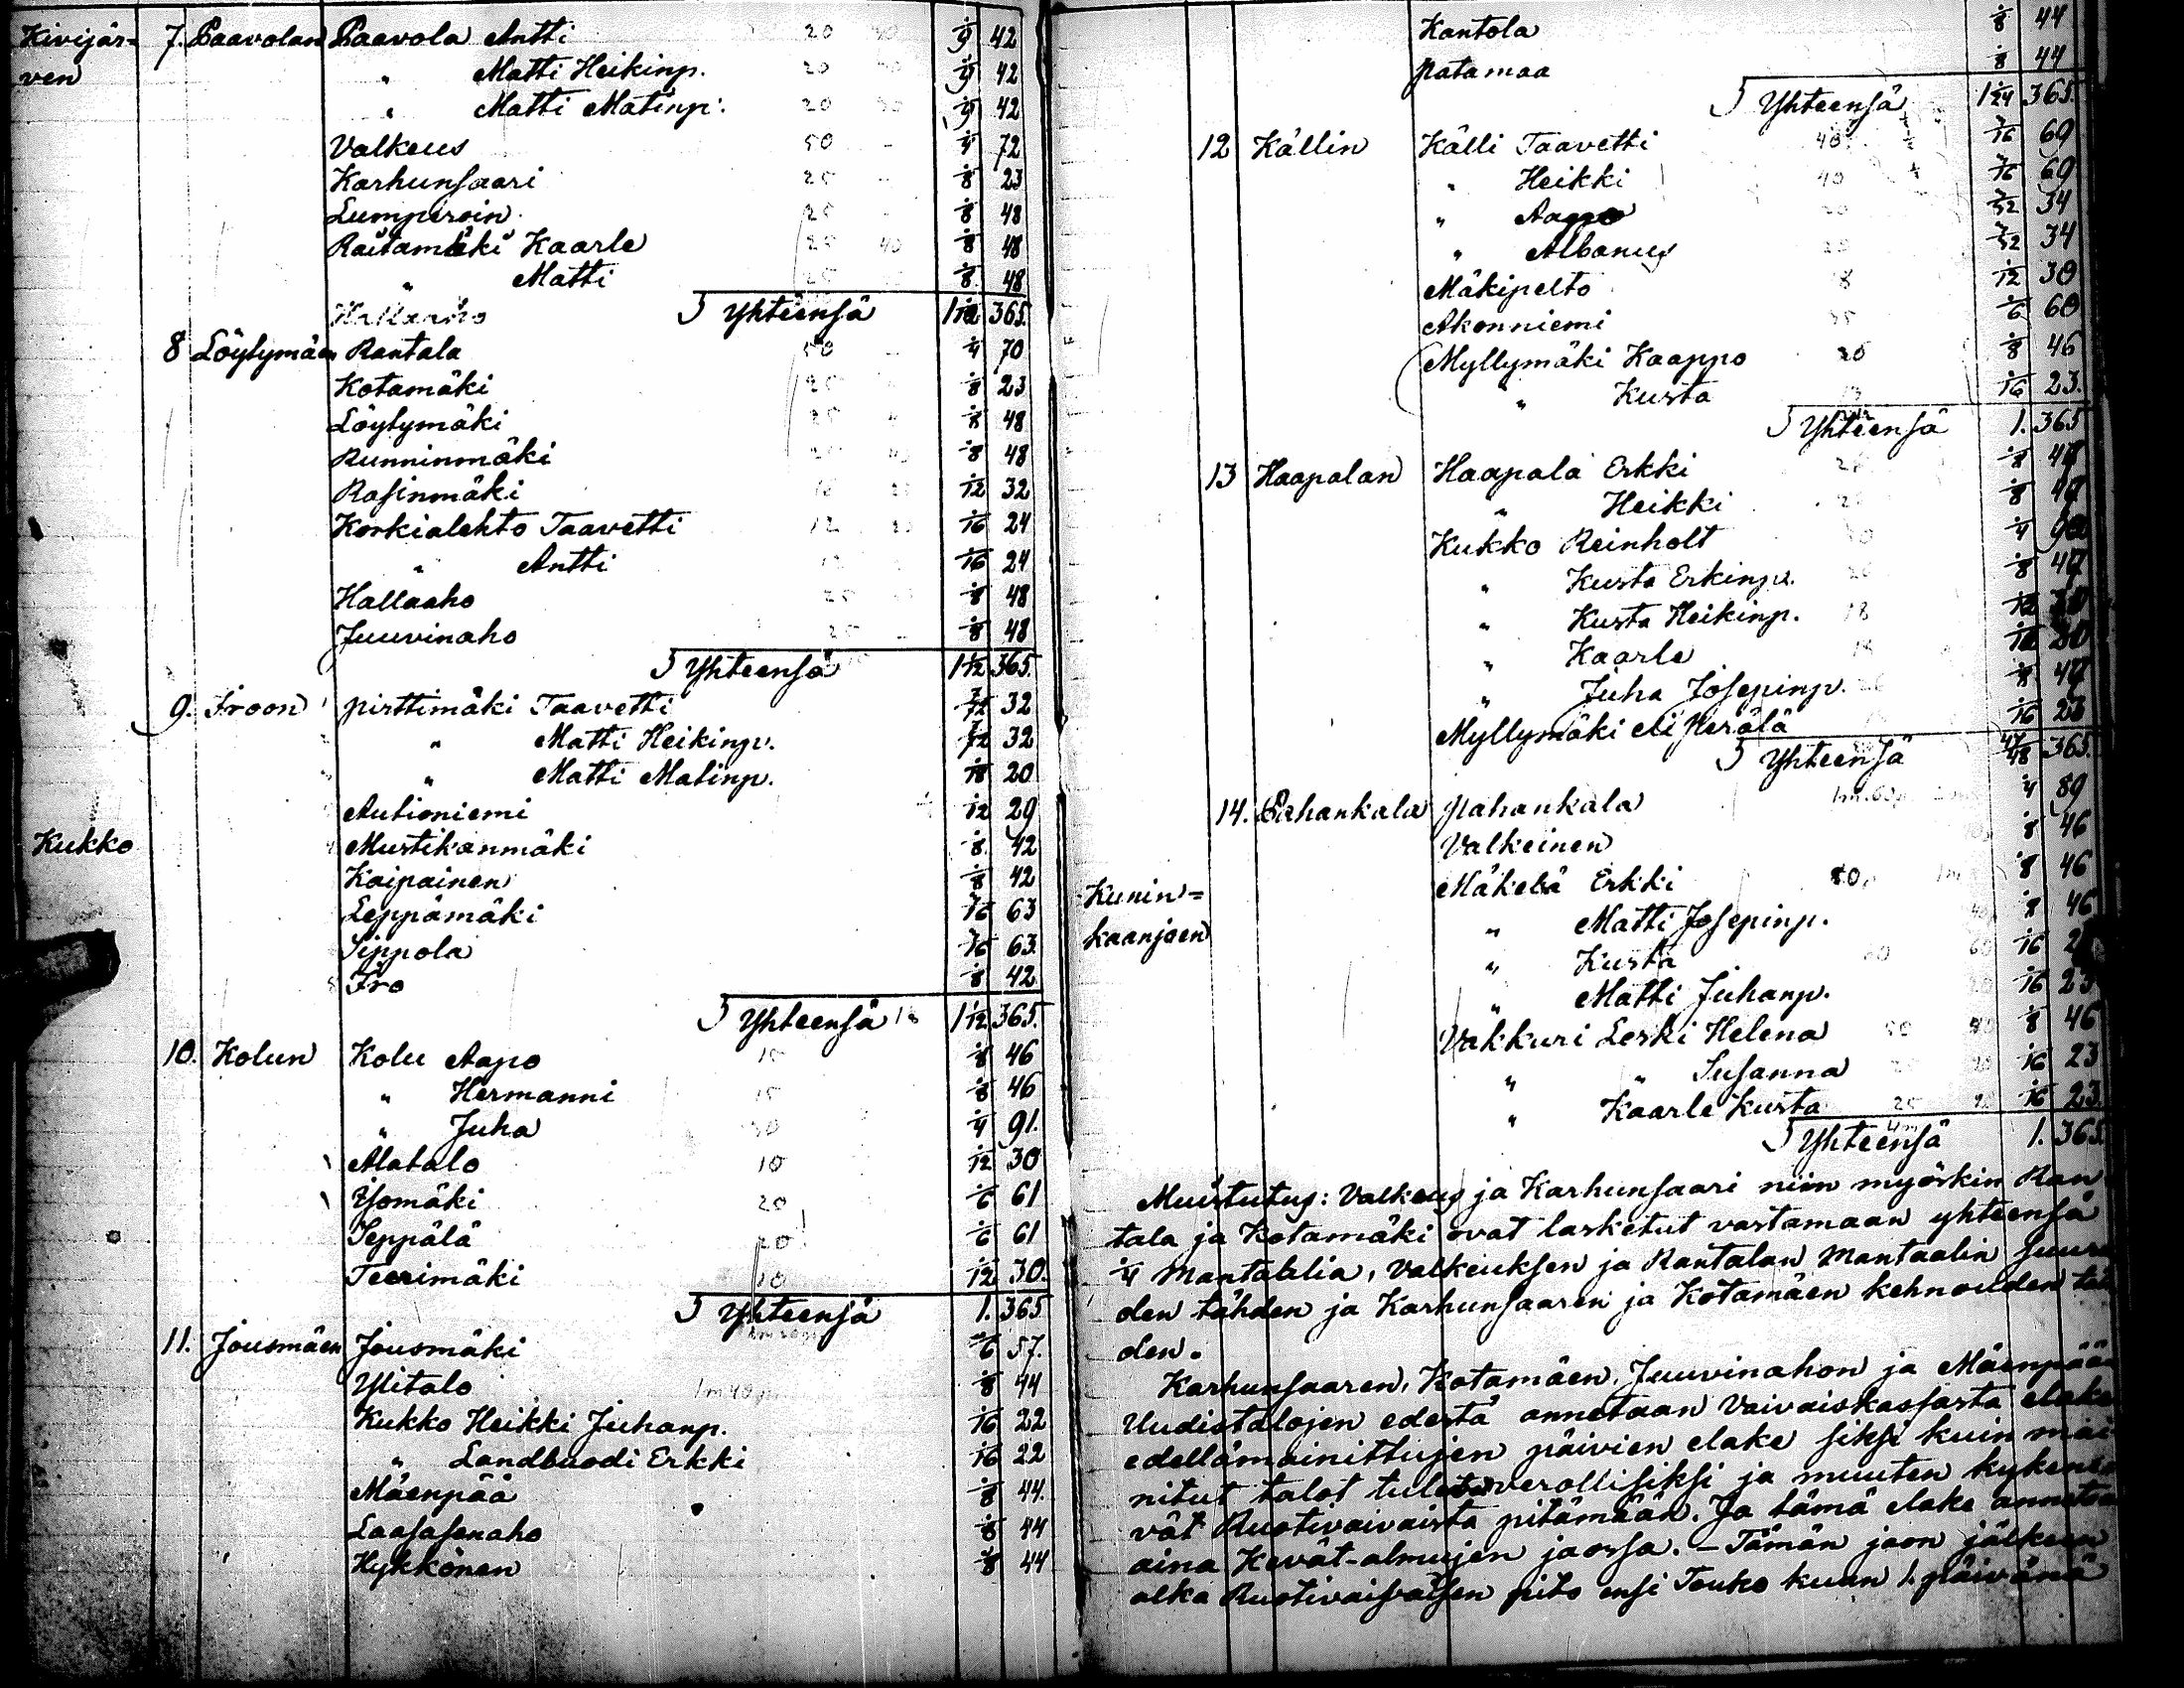 Kivijär- 7. Paavolan Paavola Antti 20 1/9 42
ven " Matti Heikinp. 20 1/9 42
" Matti Matinp. 20 1/9 42
Valkeus 50 1/4 72
Karhunsaari 25 1/8 23
Lumperoin 25 1/8 48
Raitamäki Kaarle 25 40 1/8 48
" Matti 25 1/8 48
Hallaaho Yhteensä 1 1/12 365.
8 Löytymäen Rantala 50 1/4 70
Kotamäki 25 1/8 23
Löytymäki 25 1/8 48
Runninmäki 1/8 48
Rasinmäki 1/12 32
Korkialehto Taavetti 12 1/16 24
" Antti 12 1/16 24
Hallaaho 25 1/8 48
Juuvinaho 25 1/8 48
Yhteensä 1 1/12 365.
9. Iroon Pirttimäki Taavetti 32
" Matti Heikinp. 32
" Matti Matinp. 20
Autioniemi 1/12 29
Kukko Mustikanmäki 1/8 42
Kaipainen 1/8 42
Leppämäki 3/16 63
Seppola 3/16 63
Iro 1/8 42
Yhteensä 1 1/12 365.
10. Kolun Kolu Aapo 15 1/8 46
" Hermanni 15 1/8 46
" Juha 30 1/4 91.
Alatalo 10 1/12 30
Isomäki 20 1/6 61
Seppälä 20 1/6 61
Teerimäki 10 1/12 30.
Yhteensä 1. 365
11. Jousmäen Jousmäki 1/6 57.
Ylitalo 1m40p 1/8 44
Kukko Heikki Juhanp. 1/16 22
" Landbuodi Erkki 1/16 22
Mäenpää 1/8 44.
Laasasenaho 1/8 44
Hykkönen 1/8 44
Kantola 1/8 44
Patamaa 1/8 44
Yhteensä 1 1/24 365.
12 Källin Källi Taavetti 40 3/16 69
" Heikki 40 3/16 69
" Aappo 20 3/32 34
" Albanus 20 3/32 34
Mäkipelto 18 1/12 30
Akonniemi 35 1/6 60
Myllymäki Kaappo 26 1/8 46
" Kusta 13 1/16 23.
Yhteensä 1. 365
13 Haapalan Haapala Erkki 1/8 47
" Heikki 1/8 47
Kukko Reinholt 1/4
" Kusta Erkinp. 1/8 47
" Kusta Heikinp. 18 1/12
" Kaarle 1/12
" Juha Josepinp. 1/8 47
Myllymäki eli Perälä 1/16 23
Yhteensä 47/48 365.
14. Pahankala Pahankala 1/4 89
Valkeinen 1/8 46
Kunin= Mäkelä Erkki 80 1/8 46
kaanjoen " Matti Josepinp. 1/8 46
" Kusta 60 1/16
" Matti Juhanp. 1/16 23
Vakkuri Leski Helena 50 1/8 46
" " Susanna 1/16 23
" Kaarle Kusta 25 1/16 23.
Yhteensä 1. 365
Muistutus: Valkeus ja Karhunsaari niin myöskin Ran
tala ja Kotamäki ovat lasketut vastamaan yhteensä
1/4 Mantaalia, Valkeuksen ja Rantalan Mantaalin suuru
den tähden ja Karhunsaaren ja Kotamäen kehnouden täh
den.
Karhunsaaren, Kotamäen, Juuvinahon ja Mäenpään
Uudistalojen edestä annetaan Vaivaiskassasta elake
edellämainittujen päivien elake siksi kuin mai
nitut talot tulevat verollisiksi ja muuten kykene
vät Ruotivaivaista pitämään. Ja tämä elake annetaan
aina Kevät-almujen jaossa. - Tämän jaon jälkeen
alka Ruotivaivaisen pito ensi Touko kuun 1. päivänä